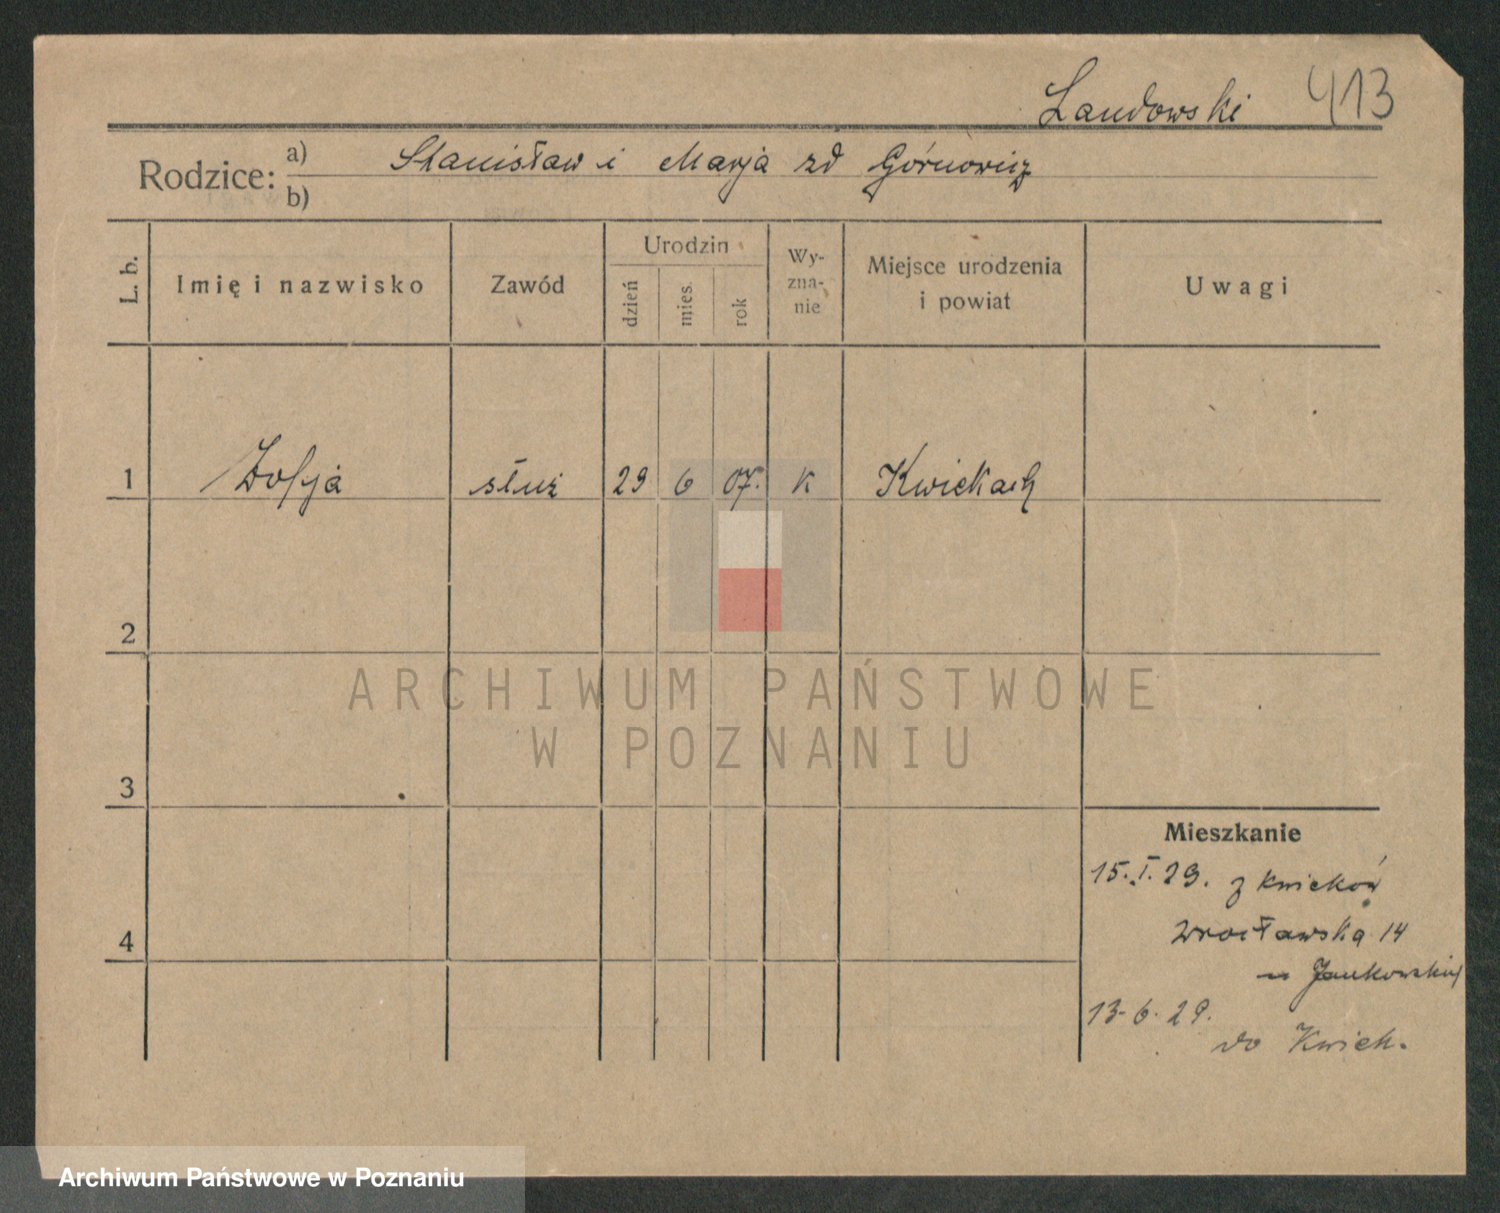 Landowski 413
Rodzice: a) Stanisław i Marja zd Górnowicz
b)
L. b. Imię i nazwisko Zawód Urodzin dzień mies. rok Wy-zna-nie Miejsce urodzenia i powiat Uwagi
1 Zofja służ 29 6 07. K Kwiekach
2
ARCHIWUM PAŃSTWOWE
W POZNANIU
3
Mieszkanie
15. I. 29. z Kwieków
4 Wrocławska 14
u Jankowskiej
13-6.29.
do Kwiek.
Archiwum Państwowe w Poznaniu